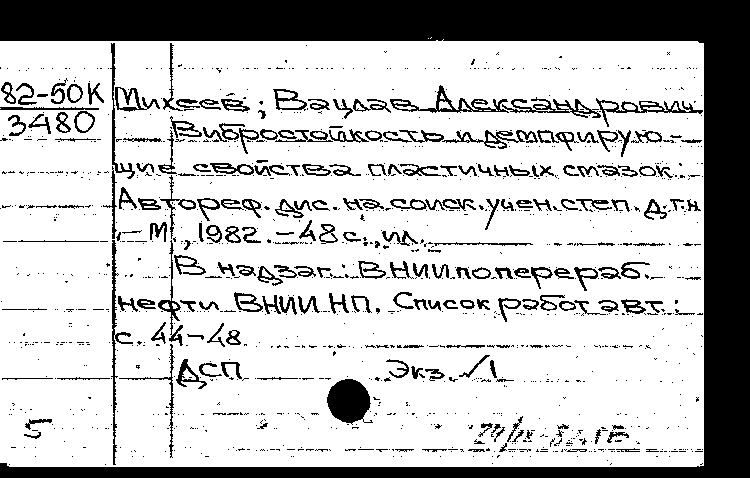 82-50К
3480
Михеев, Вацлав Александрович
Вибростойкость и демпфирую-
щие свойства пластичных смазок:
Автореф. дис. на соиск. учен. степ. д.т.н
.— М., 1982. — 48 с., ил.
В надзаг.: ВНИИ по перераб.
нефти ВНИИ НП. Список работ авт.:
с. 44-48
ДСП Экз. √1
5